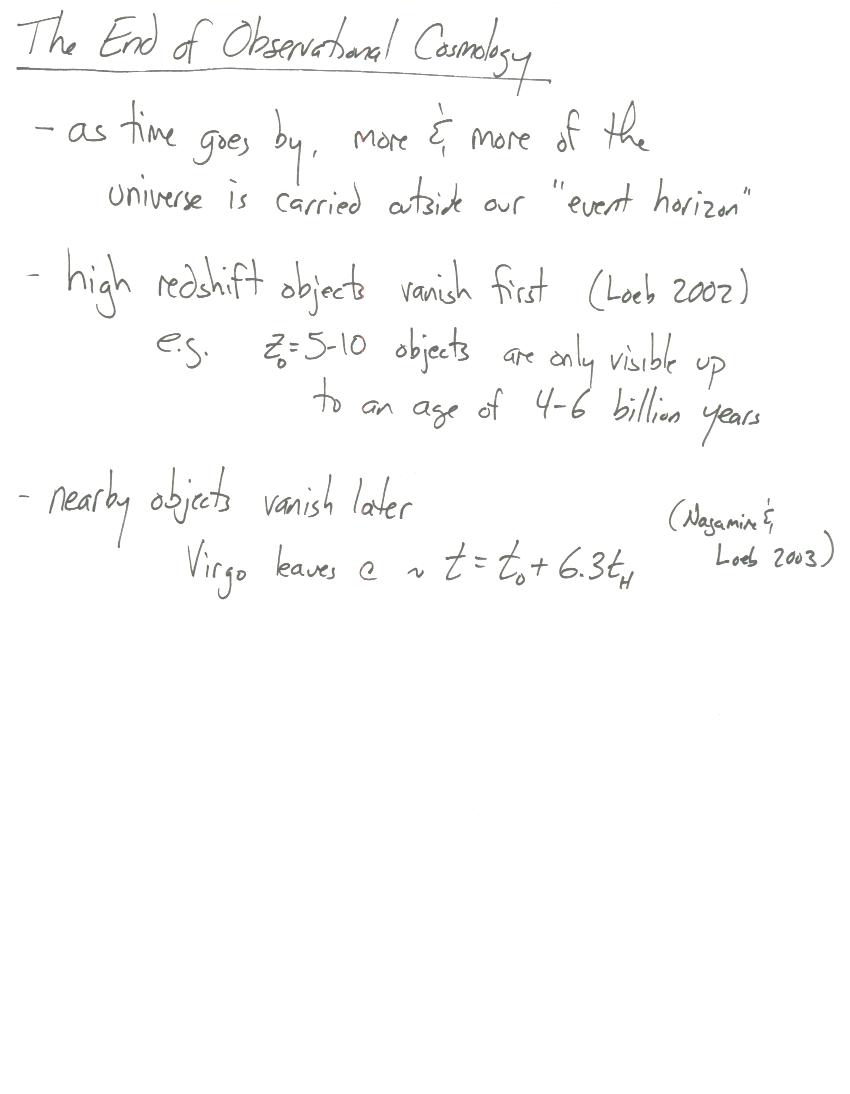 The End of Observational Cosmology
- as time goes by, more & more of the
universe is carried outside our "event horizon"
- high redshift objects vanish first (Loeb 2002)
e.g. z₀=5-10 objects are only visible up
to an age of 4-6 billion years
- nearby objects vanish later
(Nagamine &
Loeb 2003)
Virgo leaves @ ~ t = t₀ + 6.3t_H